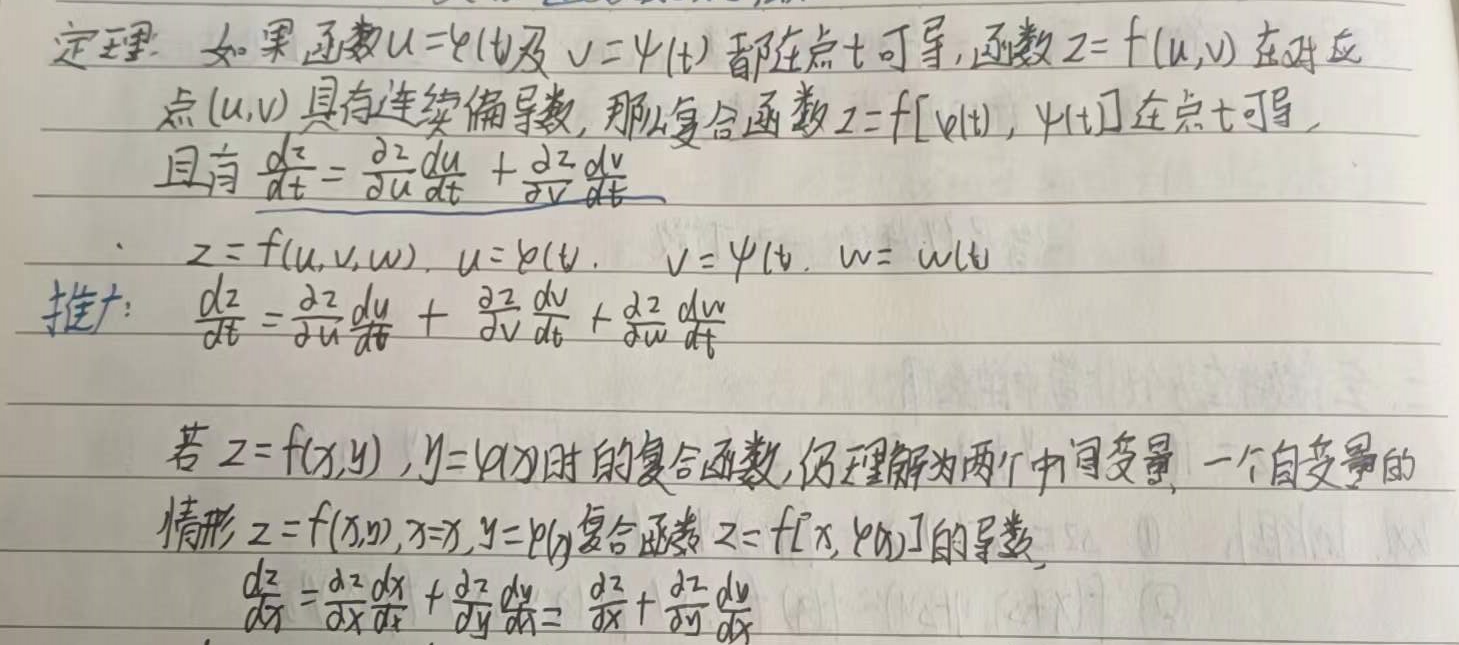 定理: 如果函数u=φ(t)及 v=ψ(t) 都在点t可导,函数z=f(u,v) 在对应
点(u,v)具有连续偏导数,那么复合函数z=f[φ(t),ψ(t)]在点t可导,
且有 dz/dt = ∂z/∂u du/dt + ∂z/∂v dv/dt
z=f(u,v,w). u=φ(t). v=ψ(t). w=w(t)
推广: dz/dt = ∂z/∂u du/dt + ∂z/∂v dv/dt + ∂z/∂w dw/dt
若 z=f(x,y),y=φ(x)时的复合函数,仍理解为两个中间变量,一个自变量的
情形 z=f(x,y),x=x,y=φ(x)复合函数 z=f[x,φ(x)]的导数,
dz/dx = ∂z/∂x dx/dx + ∂z/∂y dy/dx = ∂z/∂x + ∂z/∂y dy/dx